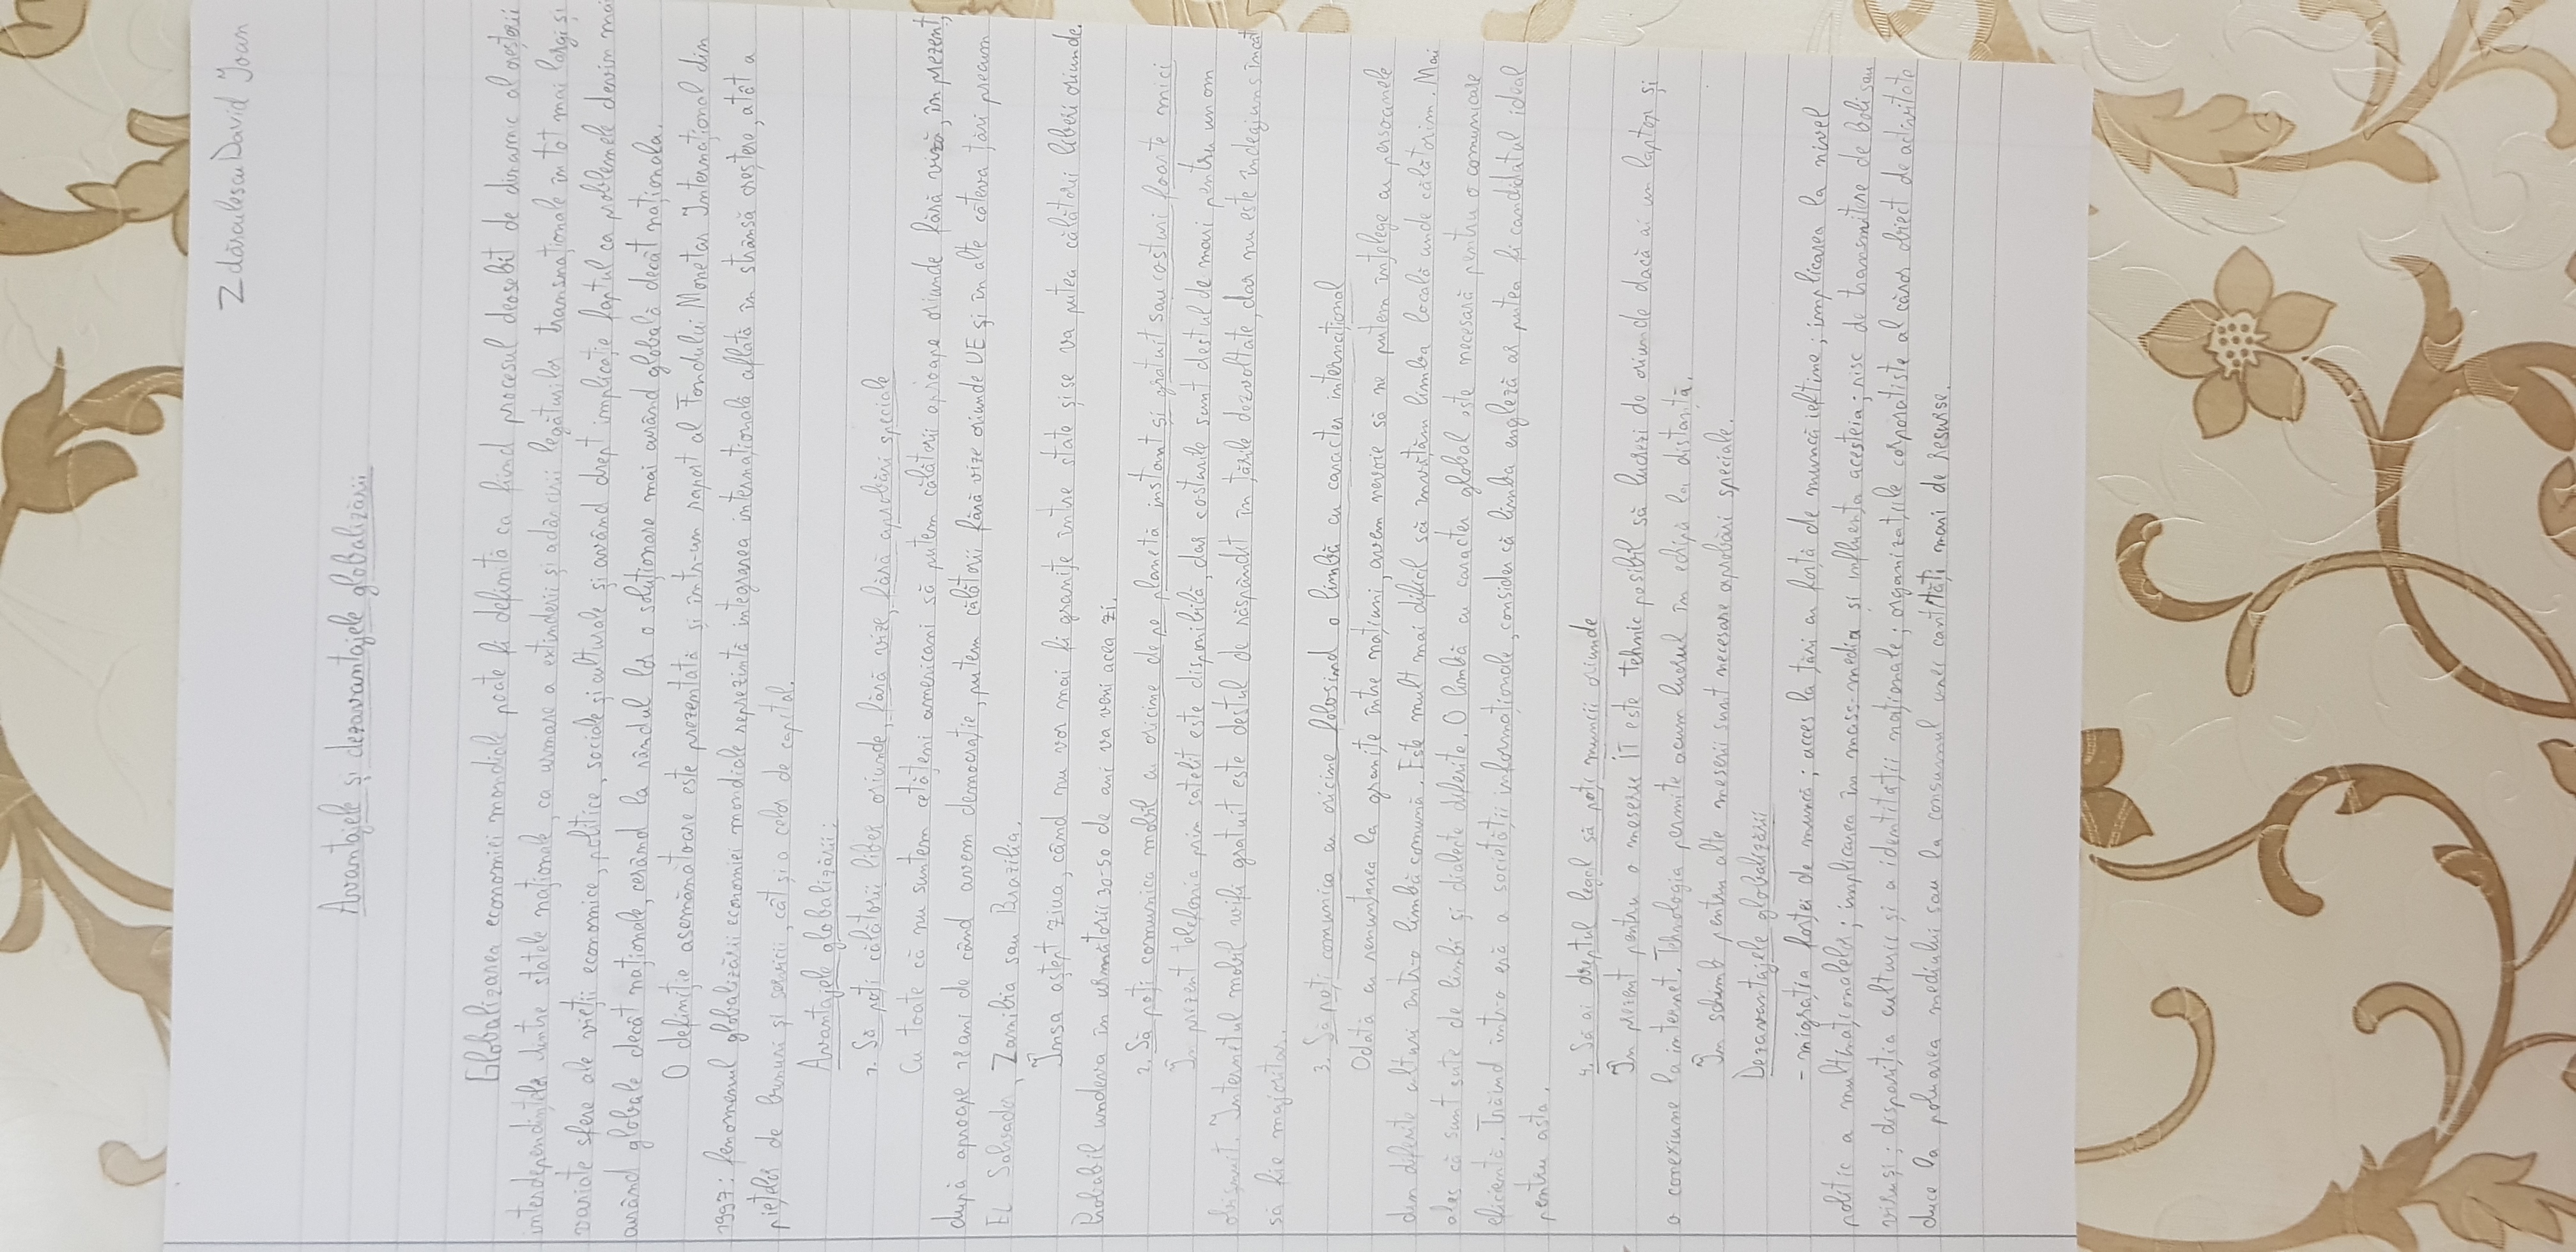 Zdărăculescu David Ioan
Avantajele și dezavantajele globalizării
Globalizarea economiei mondiale poate fi definită ca fiind procesul deosebit de dinamic al creșterii
interdependințelor dintre statele naționale, ca urmare a extinderii și adâncirii legăturilor transnaționale în tot mai largi și
variate sfere ale vieții economice, politice, sociale și culturale și având drept implicație faptul ca problemele devin mai
curând globale decât naționale, cerând la rândul lor o soluționare mai curând globală decât națională.
O definiție asemănătoare este prezentată și într-un raport al Fondului Monetar Internațional din
1997: fenomenul globalizării economiei mondiale reprezintă integrarea internațională aflată în strânsă creștere, atât a
piețelor de bunuri și servicii, cât și a celor de capital.
Avantajele globalizării:
1. Să poți călători liber oriunde, fără vize, fără aprobări speciale
Cu toate că nu suntem cetățeni americani să putem călători aproape oriunde fără viză, în prezent,
după aproape 28 ani de când avem democrație, putem călători fără vize oriunde UE și în alte câteva țări precum
El Salvador, Zambia sau Brazilia.
Însa aștept ziua, când nu vor mai fi granițe între state și se va putea călători liberi oriunde.
Probabil undeva în următorii 30-50 de ani va veni acea zi.
2. Să poți comunica mobil cu oricine de pe planetă instant și gratuit sau costuri foarte mici
În prezent telefonia prin satelit este disponibilă, dar costurile sunt destul de mari pentru un om
obișnuit. Internetul mobil wifi gratuit este destul de răspândit în țările dezvoltate, dar nu este îndeajuns încât
să fie majoritar.
3. Să poți comunica cu oricine folosind o limbă cu caracter internațional
Odată cu renunțarea la granițe între națiuni, avem nevoie să ne putem înțelege cu persoanele
din diferite culturi într-o limbă comună. Este mult mai dificil să învățăm limba locală unde călătorim. Mai
ales că sunt sute de limbi și dialecte diferite. O limbă cu caracter global este necesară pentru o comunicare
eficientă. Trăind într-o eră a societății informaționale, consider că limba engleză ar putea fi candidatul ideal
pentru asta.
4. Să ai dreptul legal să poți muncii oriunde
În prezent pentru o meserie IT este tehnic posibil să lucrezi de oriunde dacă ai un laptop și
o conexiune la internet. Tehnologia permite acum lucrul în echipă la distanță.
În schimb pentru alte meserii sunt necesare aprobări speciale.
Dezavantajele globalizării
- migrația forței de muncă; acces la țări cu forță de muncă ieftine; implicarea la nivel
politic a multinaționalelor; implicarea în mass-media și influența acesteia; risc de transmitere de boli sau
viruși; dispariția culturii și a identității naționale; organizațiile corporatiste al căror obiect de activitate
duce la poluarea mediului sau la consumul unor cantități mari de resurse.